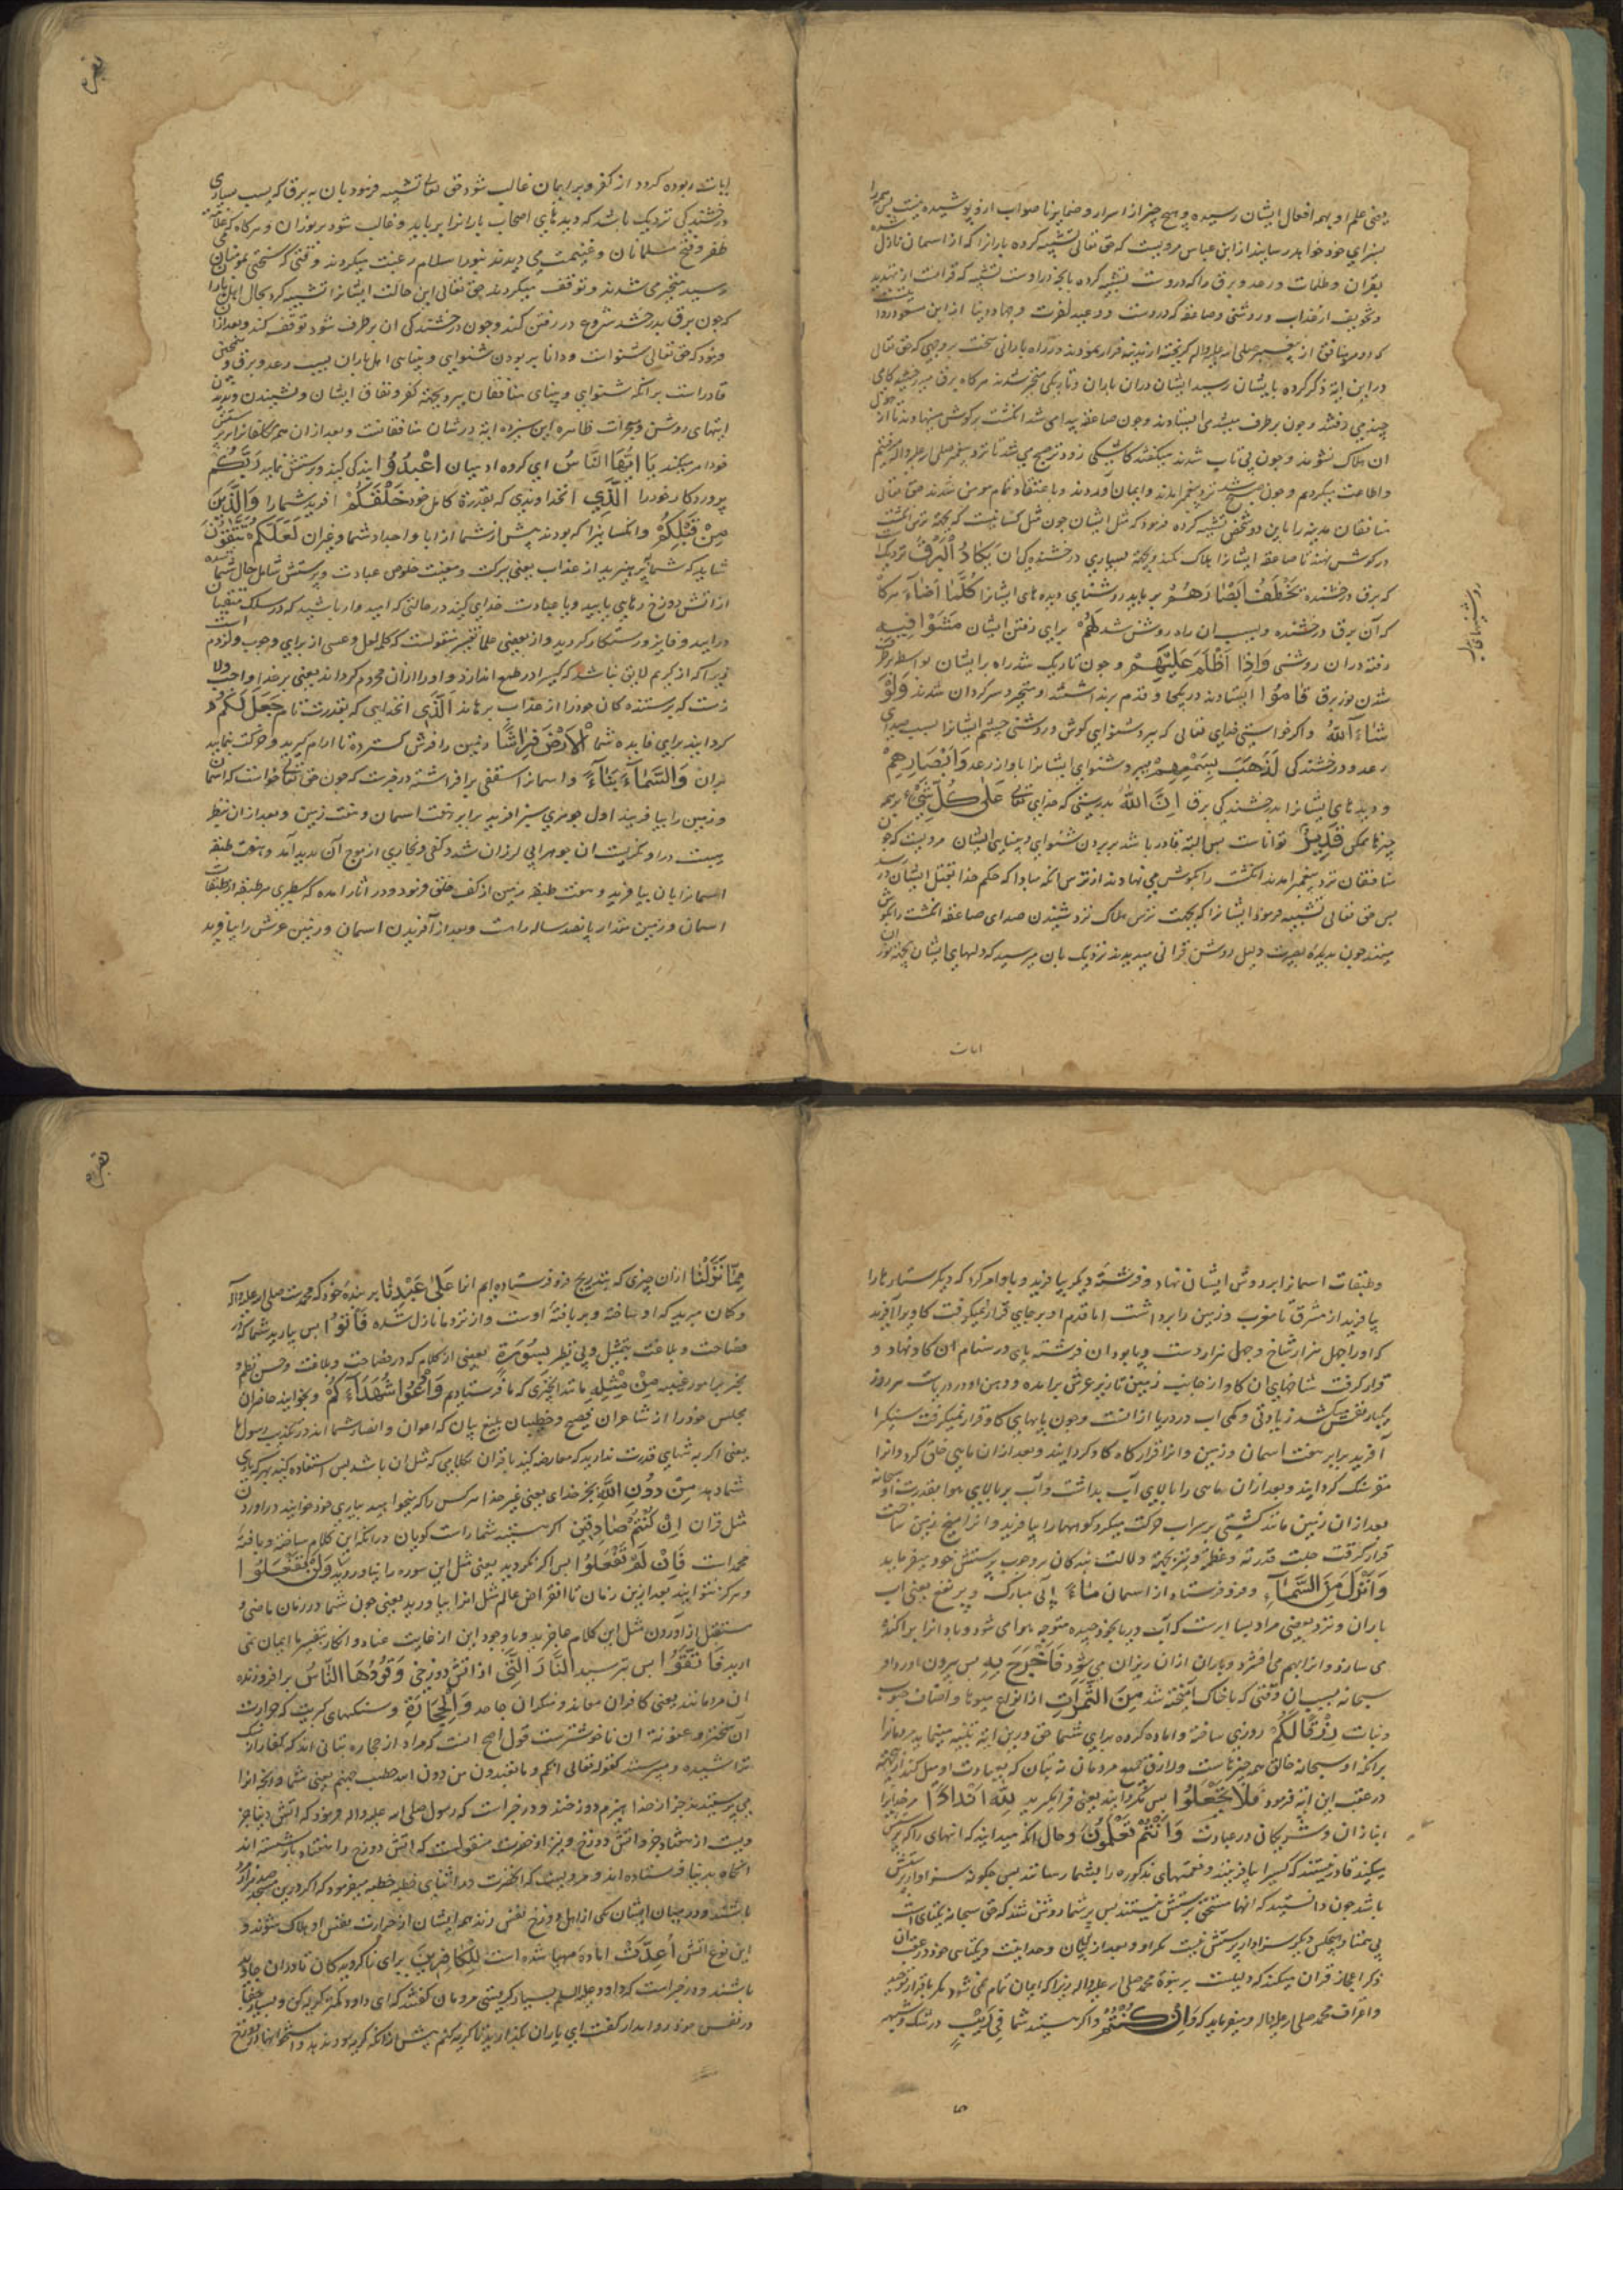 یعنی علم او بهمه افعال ایشان رسیده و هیچ چیز از اسرار و ضمایر ناصواب ازو پوشیده نیست پس همه را
بسزای خود خواهد رسانید از ابن عباس مرویست که حق تعالی تشبیه کرده بارانرا که از اسمان نازل شده
بقران و ظلمات و رعد و برق را که دروست تشبیه کرده بانچه در اوست
و تخویف از عذاب و روشنی و صاعقه که دروست و وعید اخرت و جهاد در دنیا از ابن مسعود
که دو مرد منافق از پیغمبر صلی الله علیه واله کریخته در راه بارانی سخت بر وجهی که حق تعالی
در این ایه ذکر کرده بایشان رسید ایشان دران باران و تاریکی متحیر شدند هرکاه برق میدرخشید کامی
چند می رفتند و چون برطرف میشدی ایستادند و چون صاعقه پیدا می شد انکشت بر کوش مینهادند تا از هول
ان هلاک نشوند و چون بی تاب شدند میکفتند کاشکی زود تر صبح می شد تا نزد پیغمبر صلی الله علیه واله میرفتیم
و اطاعت میکردیم و چون صبح شد نزد پیغمبر امدند و ایمان آوردند و باعتقاد تمام مومن شدند حق تعالی
منافقان مدینه را باین دو شخص تشبیه کرده فرمود که مثل ایشان چون مثل کسانیست که بجهة ترس انکشت
در کوش نهند تا صاعقه ایشانرا هلاک نکند و بجهة بسیاری درخشندکی ان یَکَادُ الْبَرْقُ نزدیک
که برق درخشنده یَخْطَفُ اَبْصَارَهُمْ برباید روشنای دیده های ایشانرا کُلَّمَا اَضَاءَ هرکاه
که آن برق درخشنده و بسبب ان راه روشن شد لَهُمْ برای رفتن ایشان مَشَوْا فِیهِ
رفتند دران روشنی وَاِذَا اَظْلَمَ عَلَیْهِمْ و چون تاریک شد راه را ایشان بواسطه برطرف
شدن نور برق قَامُوا ایستادند در یکجا و قدم برنداشتند و متحیر و سرکردان شدند وَلَوْ
شَاءَ اللّٰهُ و اکر خواستی خدای تعالی که ببرد شنوایی کوش و روشنی چشم ایشانرا بسبب صدای
رعد و درخشندکی لَذَهَبَ بِسَمْعِهِمْ ببرد شنوای ایشانرا باواز رعد وَاَبْصَارِهِمْ
و دیدهای ایشانرا بدرخشندکی برق اِنَّ اللّٰهَ بدرستی که خدای تعالی عَلٰی کُلِّ شَیْءٍ بر همه
چیزها ممکن قَدِیرٌ تواناست پس البته قادر باشد بر بردن شنوایی و بینایی ایشان مرویست که چون
منافقان نزد پیغمبر امدند انکشت را بکوش می نهادند از ترس انکه مبادا که حکم خدا بقتل ایشان در رسد
پس حق تعالی تشبیه فرمود ایشانرا که بجهت ترس هلاک نزد شنیدن صدای صاعقه انکشت را بکوش
مینهند چون بدیدهٔ بصیرت دلیل روشن قرانی میدیدند نزدیک بان میرسید که دلهای ایشان بجهة نور ان
ایات
روشنیهای
بقره
ایات ربوده کردد از کفر و بر ایمان غالب شود حق تعالی تشبیه فرمود بان به برق که بسبب بسیاری
درخشندکی نزدیک باشد که دیدهای اصحاب بارانرا برباید و غالب شود بر نور ان و هرکاه که
ظفر و فتح مسلمانان و غنیمت می دیدند بنور اسلام رغبت میکردند و وقتی که سختی بمومنان
رسید متحیر می شدند و توقف میکردند حق تعالی این حالت ایشانرا تشبیه کرد بحال اهل باران
که چون برق بدرخشد شروع در رفتن کنند و چون درخشندکی ان برطرف شود توقف کنند و بعد ازان
فرمود که حق تعالی شنواست و دانا بر بودن شنوایی و بینایی اهل باران بسبب رعد و برق و همچنین
قادر است بر انکه شنوایی و بینای منافقان ببرد بجهة کفر و نفاق ایشان و نشنیدن و ندیدن
ایتهای روشن و معجزات ظاهره این سیزده ایه در شان منافقانست و بعد ازان همه مکلفانرا بر پرستش
خود امر میکند یَا اَیُّهَا النَّاسُ ای کروه ادمیان اعْبُدُوا بندکی کنید و پرستش نمایید رَبَّکُمْ
پروردکار خود را الَّذِی آنخداوندی که بقدرة کامل خود خَلَقَکُمْ افرید شما را وَالَّذِینَ
مِنْ قَبْلِکُمْ و انکسانیرا که بودند پیش از شما از ابا و اجداد شما و غیران لَعَلَّکُمْ تَتَّقُونَ
شاید که شما بپرهیزید از عذاب یعنی ببرکت و میمنت خلوص عبادت و پرستش شامل حال شما شده
از اتش دوزخ رهایی یابید و یا عبادت خدای کنید در حالتی که امیدوار باشید که در سلک متقیان
درایید و فایز و رستکار کردید و از بعضی علما تفسیر منقولست که کلمه لعل و عسی از برای وجوب و لزوم است
زیرا که از کریم لایق نباشد که کسیرا در طمع اندازد و او را ازان محروم کرداند یعنی بر خدا واجب و لازم
است که پرستنده کان خود را از عذاب برهاند الَّذِی انخدایی که بقدرت تام جَعَلَ لَکُمُ
کردانید برای فایده شما الْاَرْضَ فِرَاشًا زمین را فرش کسترده تا ارام کیرید و حرکت نمایید
بران وَالسَّمَاءَ بِنَاءً و اسمانرا سقفی برافراشته در خبرست که چون حق تعالی خواست که اسمان
و زمین را بیافریند اول جوهری سبز افرید برابر هفت اسمان و هفت زمین و بعد ازان بنظر
هیبت درو نکریست ان جوهر ابی لرزان شد و کفی و بخاری از موج آن پدید آمد و هفت طبقه
اسمانرا بان بیافرید و هفت طبقه زمین از کف خلق فرمود و در اثار امده که سطبری هر طبقه از طبقات
اسمان و زمین مقدار پانصد ساله راهست و بعد از آفریدن اسمان و زمین عرش را بیافرید
و طبقات اسمانرا بر دوش ایشان نهاد و فرشتهٔ دیکر بیافرید و باو امر کرد که دیکر ستارها را
بیافرید از مشرق تا مغرب و زمین را برداشت اما قدم او بر جای قرار نمیکرفت کاوی را آفرید
که او را چهل هزار شاخ و چهل هزار دست و پا بود ان فرشته پای در سنام ان کاو نهاد و
قرار کرفت شاخهای ان کاو از جانب زمین تا زیر عرش برامده و دهن او در دریاست هر روز
یکبار نفس میکشد زیادتی و کمی اب در دریا ازانست و چون پایهای کاو قرار نمیکرفت سنکیرا
آفرید برابر هفت اسمان و زمین و انرا قرارکاه کاو کردانید و بعد ازان ماهی خلق کرد و انرا
مقر سنک کردانید و بعد ازان ماهی را بالای آب بداشت و آب بر بالای هوا بقدرت او سبحانه
بعد ازان زمین مانند کشتی بر سر اب حرکت میکرد کوهها را بیافرید و انرا میخ زمین ساخت
قرار کرفت جلت قدرته و عظمته و نیز بجهة دلالت بندکان بر وجوب پرستش خود میفرماید
وَاَنْزَلَ مِنَ السَّمَاءِ و فرو فرستاد از اسمان مَاءً ابی مبارک و پر نفع یعنی اب
باران و نزد بعضی مراد بسما ابرست که آب دریا بخود چیده متوجه هوا می شود و باد انرا پراکنده
می سازد و انرا بهم می افشرد و باران ازان ریزان می شود فَاَخْرَجَ بِهِ پس بیرون اورد او
سبحانه بسبب ان وقتی که با خاک امیخته شد مِنَ الثَّمَرَاتِ از انواع میوها و اصناف حبوب
و نبات رِزْقًا لَکُمْ روزی ساخته و اماده کرده برای شما حق درین ایه تنبیه مینماید مردمانرا
برانکه او سبحانه خالق همه چیزهاست و رازق جمیع مردمان نه بتان که بعبادت او میل کنند ازینجهة
در عقب این ایه فرمود فَلَا تَجْعَلُوا پس مکردانید یعنی فرا مکیرید لِلّٰهِ اَنْدَادًا مر خدایرا
انبازان و شریکانی در عبادت وَاَنْتُمْ تَعْلَمُونَ و حال انکه میدانید که انهای را که پرستش
میکنید قادر نیستند که کسیرا بیافرینند و نعمتهای مذکوره را بشما رسانند پس چکونه سزاوار پرستش
باشد چون دانستید که انها مستحق پرستش نیستند پس بر شما روشن شد که حق سبحانه یکتای است
بی همتا و هیچکس دیکر سزاوار پرستش نیست مکر او و بعد از بیان وحدانیت و یکتای خود در عقب ان
ذکر اعجاز قران میکند که دلیلست بر نبوة محمد صلی الله علیه واله زیرا که ایمان تمام نمی شود مکر باقرار توحید
و اعتراف محمد صلی الله علیه واله و میفرماید که وَاِنْ کُنْتُمْ و اکر هستید شما فِی رَیْبٍ در شک و شبهه
مما
بقره
مِمَّا نَزَّلْنَا ازان چیزی که بتدریج فرو فرستاده ایم انرا عَلٰی عَبْدِنَا بر بندهٔ خود که محمدست صلی الله علیه واله
و کمان میبرید که او ساخته و بربافتهٔ اوست و از نزد ما نازل نشده فَأْتُوا پس بیارید شما که در
فصاحت و بلاغت بی مثل و بی نظیر بِسُورَةٍ یعنی از کلام که در فصاحت و بلاغت و حسن نظم و
خبر بر امور غیبیه مِنْ مِثْلِهِ مانند انچیزی که ما فرستادیم وَادْعُوا شُهَدَاءَکُمْ و بخوانید حاضران
مجلس خود را از شاعران فصیح و خطیبان بلیغ بیان که اعوان و انصار شما اند در تکذیب رسول ما
یعنی اکر به تنهایی قدرت ندارید که معارضه کنید با قران بکلامی که مثل ان باشد پس استعانه کنید بهر که یاری
شما دهد مِنْ دُونِ اللّٰهِ بجز خدای یعنی غیر خدا هر کس را که میخواهید بیاری خود خوانید در اوردن
مثل قران اِنْ کُنْتُمْ صَادِقِینَ اکر هستید شما راست کویان درانکه این کلام ساخته و بافتهٔ
محمد است فَاِنْ لَمْ تَفْعَلُوا پس اکر نکردید یعنی مثل این سوره را نیاوردید وَلَنْ تَفْعَلُوا
و هرکز نتوانید بعد ازین زمان تا انقراض عالم مثل انرا بیاورید یعنی چون شما در زمان ماضی و
مستقبل از آوردن مثل این کلام عاجزید و با وجود این از غایت عناد و انکار بپیغمبر ما ایمان نمی
ارید فَاتَّقُوا پس بترسید النَّارَ الَّتِی از اتش دوزخی وَقُودُهَا النَّاسُ برافروزنده
ان مردمانند یعنی کافران معاند و منکران جاحد وَالْحِجَارَةُ و سنکهای کبریت که حرارت
آن سختتر و عفونة ان ناخوشترست قول اصح انست که مراد از حجاره بتانی اند که کفار از سنک
تراشیده و میپرستند کقوله تعالی انکم و ما تعبدون من دون الله حصب جهنم یعنی شما و انچه انرا
می پرستیدید بجز از خدا هیزم دوزخند و در خبر است که رسول صلی الله علیه واله فرمود که اتش دنیا جز
ویست از هفتاد جزو اتش دوزخ و نیز از حضرت منقولست که اتش دوزخ را هفتاد بار شسته اند
انکاه بدنیا فرستاده اند و مرویست که انحضرت در اثنای خطبه میفرمود که اکر درین مسجد صد هزار مرد
باشند و در میان ایشان یکی از اهل دوزخ نفس زند همه ایشان از حرارت نفس او هلاک شوند و
این نوع اتش اُعِدَّتْ اماده مهیا شده است لِلْکَافِرِینَ برای ناکرویدکان تا دران جاوید
باشند و در خبر است که داود علیه السلم بسیار کریستی مردمان کفتند که ای داود کمتر کریه کن
در نفس خود روا مدار کفت ای یاران بکذارید تا کریه کنم پیش از انکه کریه سود ندهد و استخوانها در دوزخ